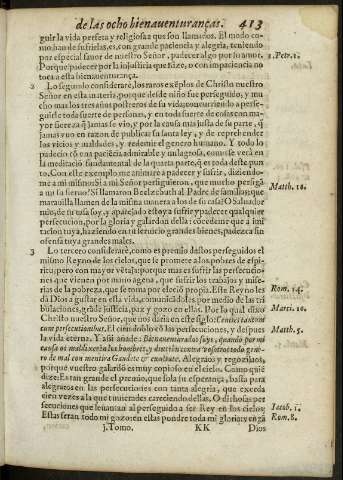 de las ocho bienauenturanças. 413
guir la vida perfeta y religiosa a que son llamados. El modo co-
mo han de sufrirlas, es, con grande paciencia y alegria, teniendo
por especial fauor de nuestro Señor, padecer algo por su amor. 1. Petr. 2.
Porque padecer por la injusticia que hize, o con impaciencia no
toca a esta bienauenturança.
2 Lo segundo considerarè, los raros exẽplos de Christo nuestro
Señor en esta materia, porque desde niño fue perseguido, y mu
cho mas los tres años postreros de su vida, concurriendo a perse-
guirle toda suerte de personas, y en toda suerte de cosas con ma-
yor fiereza q̃ jamas se vio, y por la causa mas justa de su parte, q̃
jamas vuo en razon de publicar su santa ley, y de reprehender
los vicios y maldades, y redemir el genero humano. Y todo lo
padecio cõ vna paciẽcia admirable y milagrosa, como se verà en
la meditaciõ fundamental de la quarta parte, q̃ es toda deste pun
to. Con este exemplo me animarè a padecer y sufrir, diziendo-
me a mi mismo: Si a mi Señor persiguieron, que mucho persigã
a su sieruo? Si llamaron Beelzebuch al Padre de familias, que Matth. 10.
marauilla llamen de la misma manera a los de su casa? O Saluador
mio, de tu casa soy, y aparejado estoy a sufrir y padecer qualquier
persecucion, por la gloria y gallardon della: cõcedeme que a imi
tacion tuya, haziendo en tu seruicio grandes bienes, padezca sin
ofensa tuya grandes males.
3 Lo tercero considerarè, como es premio destos perseguidos el
mismo Reyno de los cielos, que se promete a los pobres de espi-
ritu; pero con mayor vẽtaja: porque mas es sufrir las persecucio-
nes que vienen por mano agena, que sufrir los trabajos y mise-
rias de la pobreza, que se toma por eleciõ propia. Este Reyno les Rom. 14.
dà Dios a gustar en esta vida, comunicãdoles por medio de las tri
bulaciones, grãde justicia, paz y gozo en ellas. Por lo qual dixo Marci. 10.
Christo nuestro Señor, que nos daria en este siglo: Centies tantum
cum persecutionibus. El cien doblo cõ las persecuciones, y despues Matth. 5.
la vida eterna. Y assi añade: Bienauenturados soys, quando por mi
causa os maldixeren los hombres, y dixeren contra vosotros todo gene-
ro de mal con mentira: Gaudete & exultate. Alegraos y regozijaos,
porque vuestro galardõ es muy copioso en el cielo. Como quiẽ
dize: Es tan grande el premio, que sola su esperança, basta para
alegraros en las persecuciones con tanta alegria, que exceda
cien vezes a la que tuuierades careciendo dellas. O dichosas per
secuciones que leuantan al perseguido a ser Rey en los cielos; Iacob. 1.
Estas seran todo mi gozo: en estas pondre toda mi gloria: y en gã Rom. 8.
j. Tomo. KK Dios